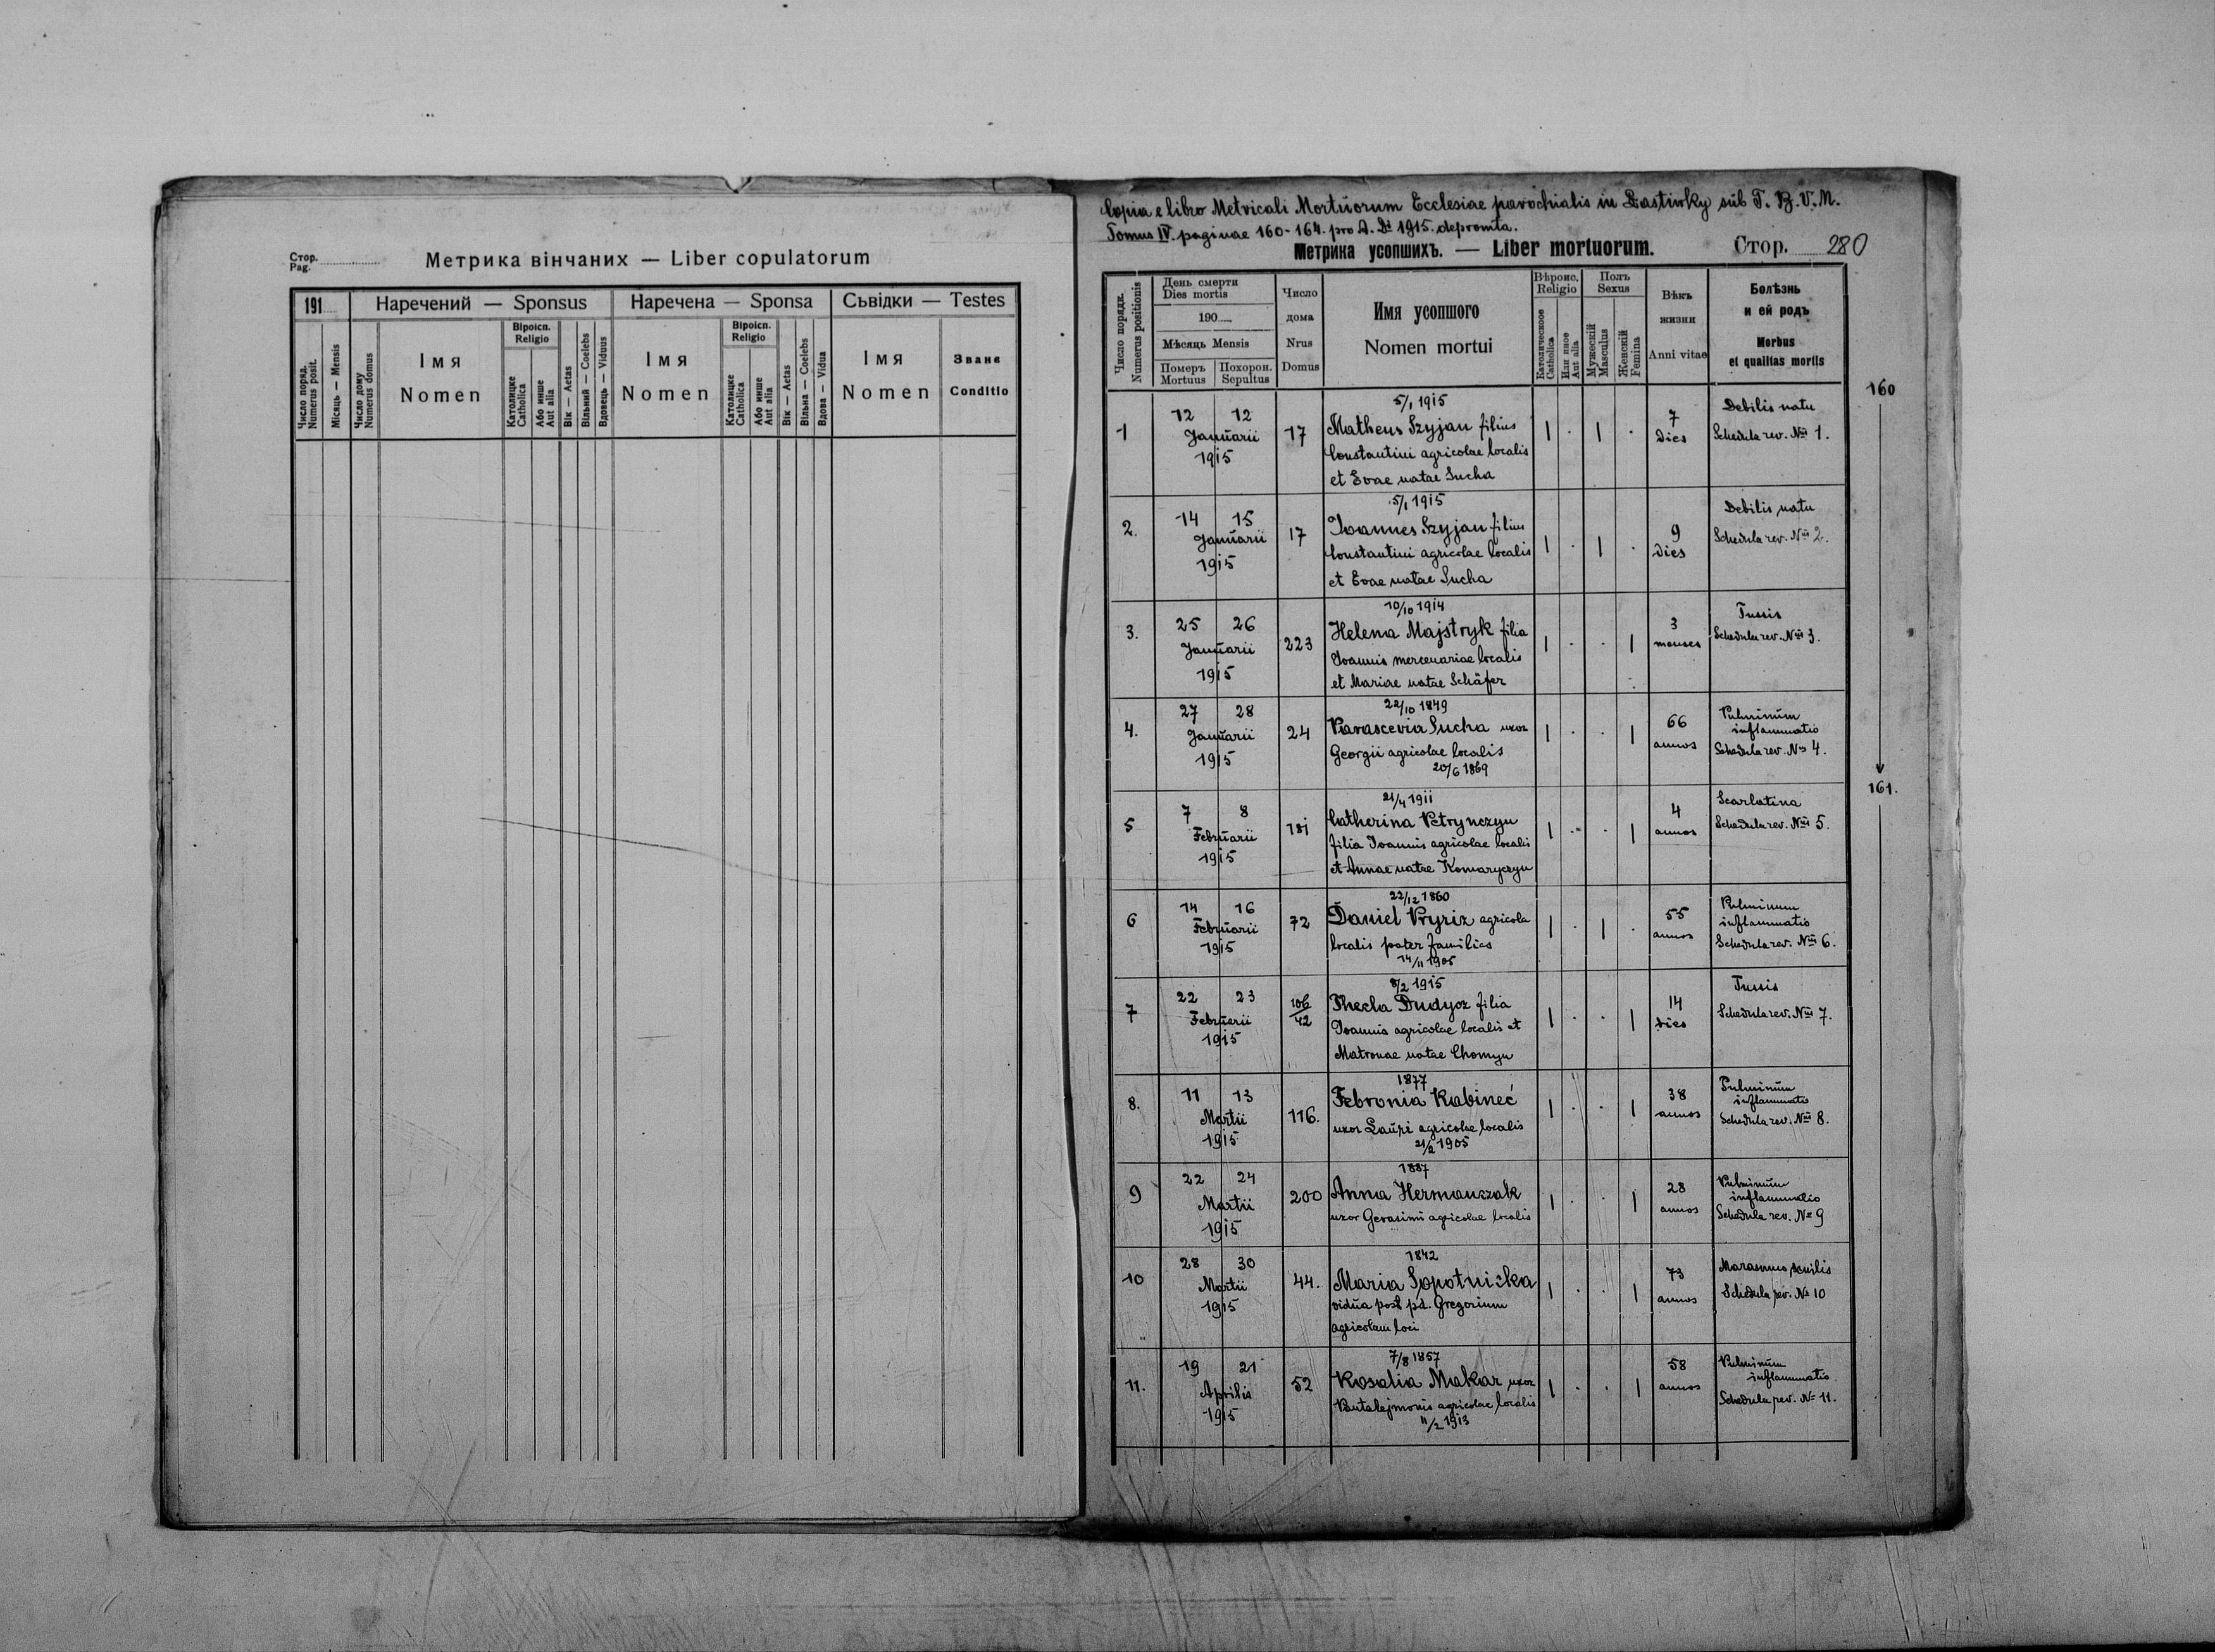 Стор.
Pag.
Метрика вінчаних — Liber copulatorum
191
Наречений — Sponsus
Наречена — Sponsa
Сьвідки — Testes
Число поряд.
Numerus posit.
Місяць — Mensis
Число дому
Numerus domus
Імя
Nomen
Віроісп.
Religio
Католицке
Catholica
Або инше
Aut alia
Вік — Aetas
Вільний — Coelebs
Вдовець — Viduus
Імя
Nomen
Віроісп.
Religio
Католицке
Catholica
Або инше
Aut alia
Вік — Aetas
Вільна — Coelebs
Вдова — Vidua
Імя
Nomen
Званє
Conditio
Copia e libro Metricali Mortuorum Ecclesiae parochialis in Dastinky sub T. B. V. M.
Tomus IV. paginae 160-164. pro A. Di 1915. depromta.
Метрика усопшихъ. — Liber mortuorum.
Стор. 280
Число порядк.
Numerus positionis
День смерти
Dies mortis
190
Мѣсяць Mensis
Померъ
Mortuus
Похорон.
Sepultus
Число
дома
Nrus
Domus
Имя усопшого
Nomen mortui
Вѣроис.
Religio
Католическое
Catholica
Или иное
Aut alia
Полъ
Sexus
Мужескій
Masculus
Женскій
Femina
Вѣкъ
жизни
Anni vitae
Болѣзнь
и ей родъ
Morbus
et qualitas mortis
160
1
12 12
Januarii
1915
17
5/1 1915
Matheus Szyjan filius
Constantini agricolae localis
et Evae natae Sucha
7
Dies
Debilis natu
Schedula rev. Nri 1.
2.
14 15
Januarii
1915
17
5/1 1915
Ioannes Szyjan filius
Constantini agricolae localis
et Evae natae Sucha
9
Dies
Debilis natu
Schedula rev. Nri 2.
3.
25 26
Januarii
1915
223
10/10 1914
Helena Majstryk filia
Ioannis mercenariae localis
et Mariae natae Schäfer
3
menses
Tussis
Schedula rev. Nri 3.
4.
27 28
Januarii
1915
24
22/10 1849
Parascevia Sucha uxor
Georgii agricolae localis
20/6 1869
66
annos
Pulminum
inflammatio
Schedula rev. No 4.
161.
5
7 8
Februarii
1915
181
21/4 1911
Catherina Petrynczyn
filia Ioannis agricolae localis
et Annae natae Komaryczyn
4
annos
Scarlatina
Schedula rev. Nri 5.
6
14 16
Februarii
1915
72
22/12 1860
Daniel Pryriz agricola
localis pater familias
14/11 1905
55
annos
Pulminum
inflammatio
Schedula rev. Nri 6.
7
22 23
Februarii
1915
106/42
8/2 1915
Thecla Dudycz filia
Ioannis agricolae localis et
Matronae natae Chomyn
14
dies
Tussis
Schedula rev. Nri 7.
8.
11 13
Martii
1915
116.
1877
Febronia Kabineć
uxor Lauri agricolae localis
21/2 1905
38
annos
Pulminum
inflammatio
Schedula rev. Nri 8.
9
22 24
Martii
1915
200
1887
Anna Hermanczak
uxor Gerasimi agricolae localis
28
annos
Pulminum
inflammatio
Schedula rev. No 9
10
28 30
Martii
1915
44.
1842
Maria Sopotnička
vidua post pd. Gregorium
agricolam loci
73
annos
Marasmus senilis
Schedula rev. No 10
11.
19 21
Aprilis
1915
52
7/8 1857
Rosalia Makar uxor
Pantalejmonis agricolae localis
11/2 1913
58
annos
Pulminum
inflammatio
Schedula rev. No 11.